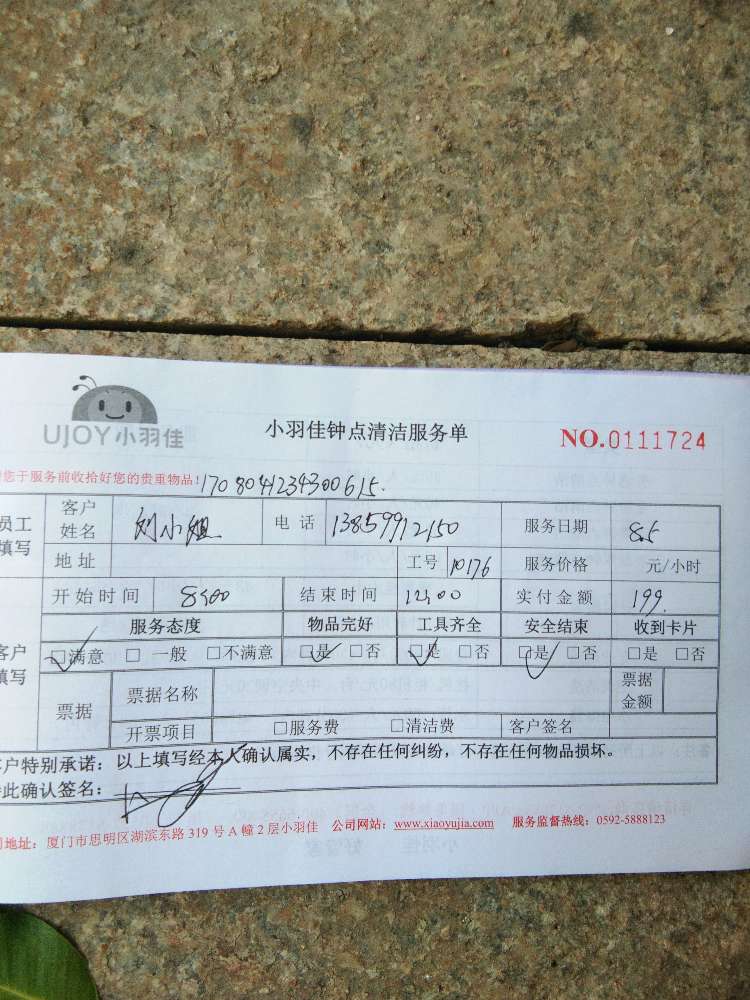 UJOY小羽佳
小羽佳钟点清洁服务单 NO.0111724
您于服务前收拾好您的贵重物品! 1708041234300615.
员工填写 客户姓名 刘小姐 电话 13859912150 服务日期 8.5
地址 工号 10176 服务价格 元/小时
开始时间 8:00 结束时间 12:00 实付金额 199.
服务态度 物品完好 工具齐全 安全结束 收到卡片
客户填写 ☑满意 □一般 □不满意 ☑是 □否 ☑是 □否 ☑是 □否 □是 □否
票据 票据名称 票据金额
开票项目 □服务费 □清洁费 客户签名
客户特别承诺：以上填写经本人确认属实，不存在任何纠纷，不存在任何物品损坏。
此确认签名：
地址：厦门市思明区湖滨东路 319 号 A 幢 2 层小羽佳 公司网站：www.xiaoyujia.com 服务监督热线：0592-5888123